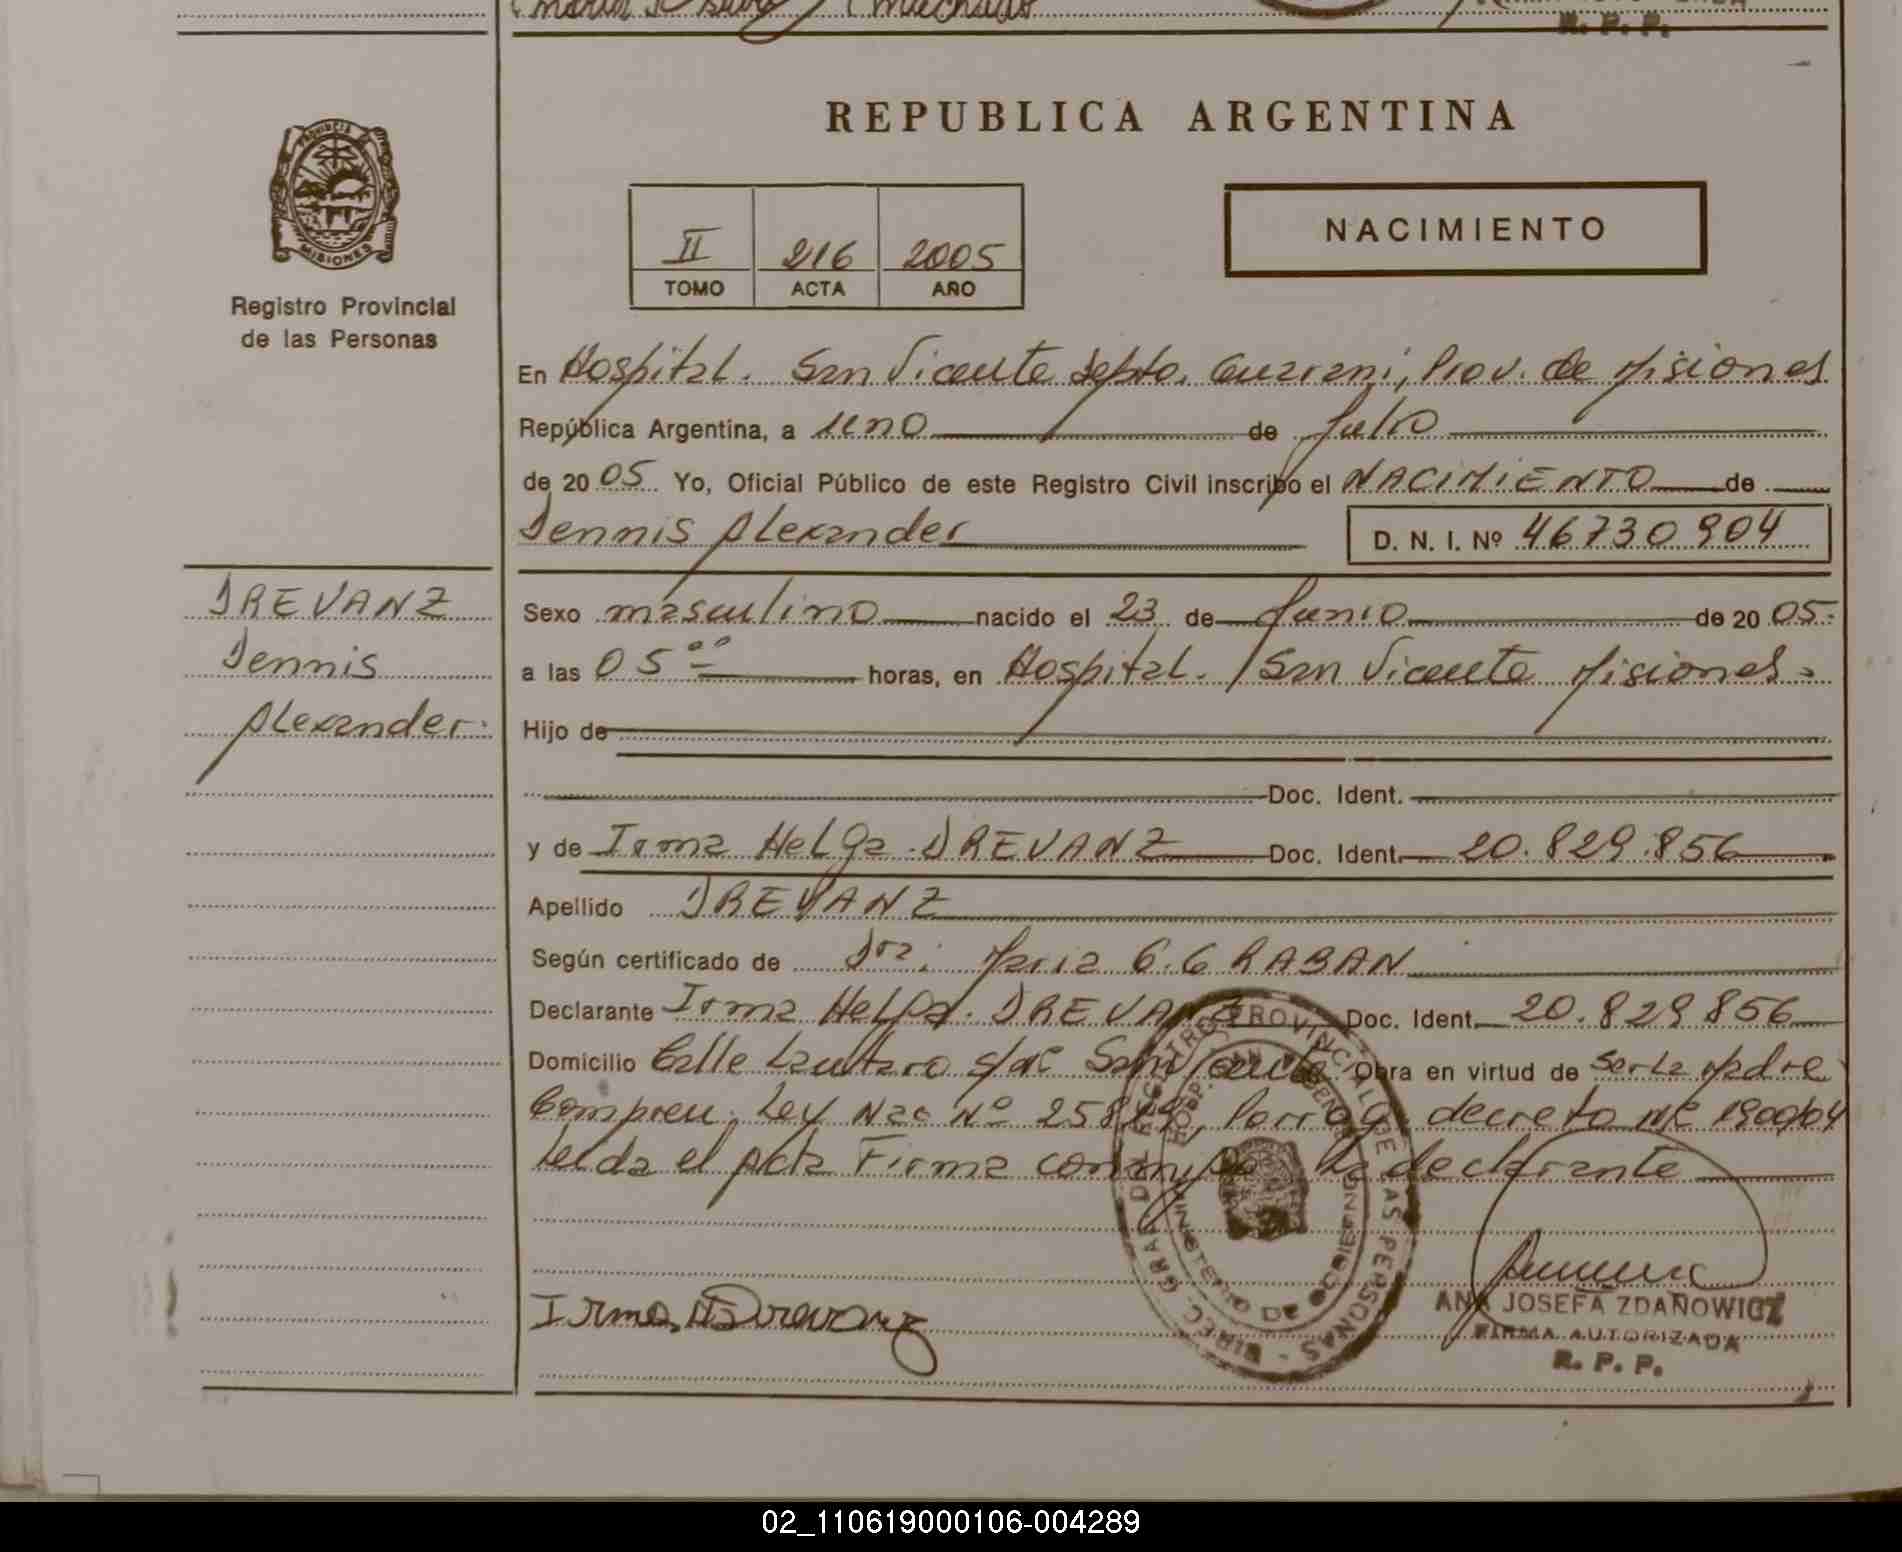 R. P. P.
REPUBLICA ARGENTINA
PROVINCIA
MISIONES
Registro Provincial
de las Personas
II 216 2005
TOMO ACTA AÑO
NACIMIENTO
En Hospital. San Vicente Depto. Guarani, Prov. de Misiones
República Argentina, a uno de Julio
de 2005 Yo, Oficial Público de este Registro Civil inscribo el NACIMIENTO de
Dennis Alexander D. N. I. Nº 46730904
DREVANZ
Dennis
Alexander
Sexo masculino nacido el 23 de Junio de 2005
a las 05 00 horas, en Hospital. San Vicente Misiones
Hijo de
Doc. Ident.
y de Irma Helga DREVANZ Doc. Ident. 20.829.856
Apellido DREVANZ
Según certificado de Dra: Maria G. G RABAN
Declarante Irma Helga DREVANZ Doc. Ident. 20.829 856
Domicilio Calle Lautaro s/nº San Vicente Obra en virtud de ser la Madre
Ley Nac Nº decreto Nº 1900/04
Leida el Acta Firma conmigo la declarante
REGISTRO PROVINCIAL DE LAS PERSONAS
MINISTERIO DE GOBIERNO
Irma H Drevanz
ANA JOSEFA ZDANOWICZ
FIRMA AUTORIZADA
R. P. P.
02_110619000106-004289